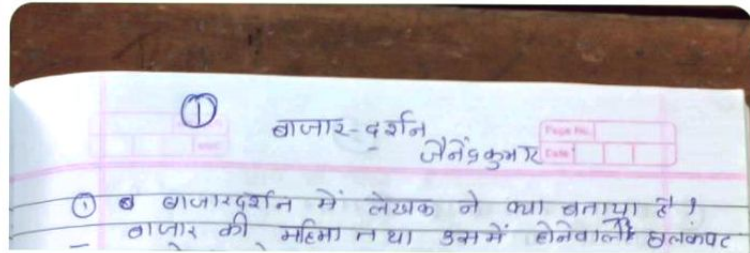 ①
बाजार-दर्शन
जैनेंद्रकुमार
Page No.
Date
① बाजारदर्शन में लेखक ने क्या बताया है ?
बाजार की महिमा तथा उसमें होनेवाले छलकपट